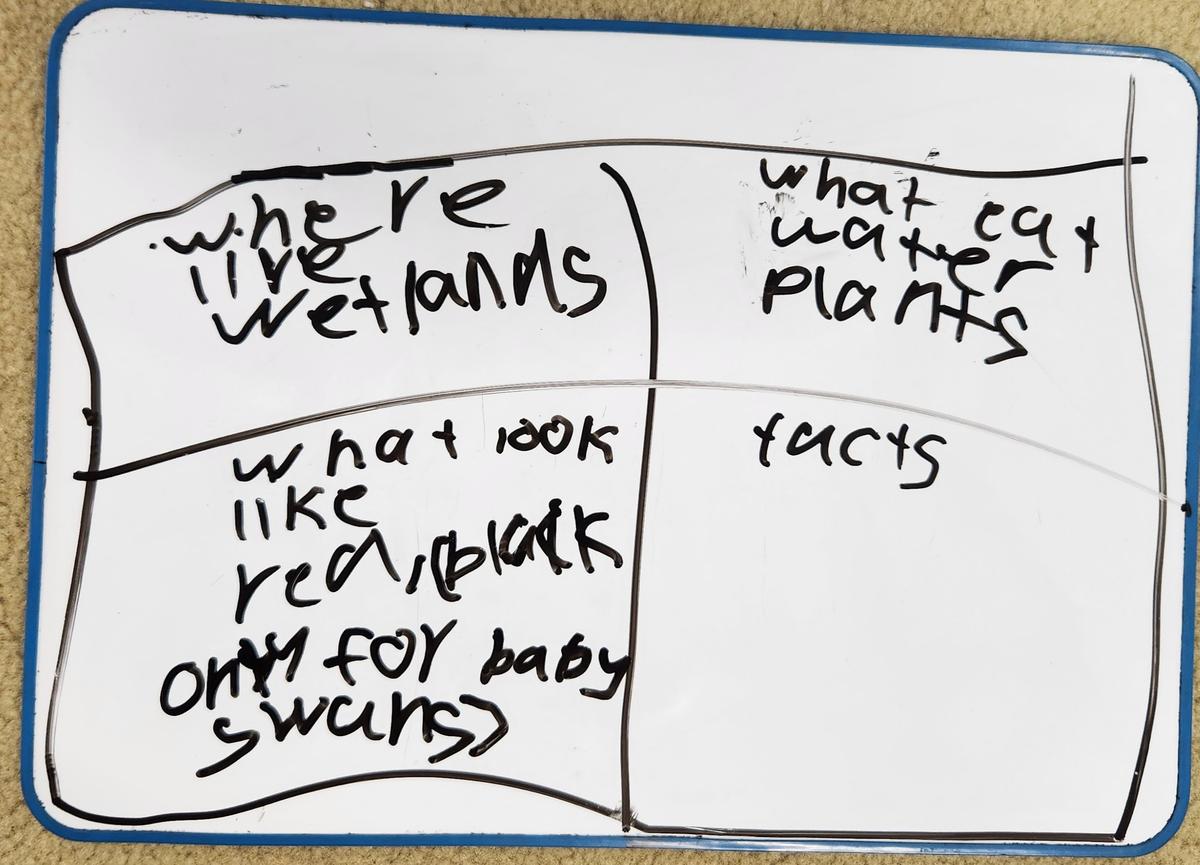 where
live
wetlands
what eat
water
plants
what look
like
red, (black
only for baby
swans)
facts